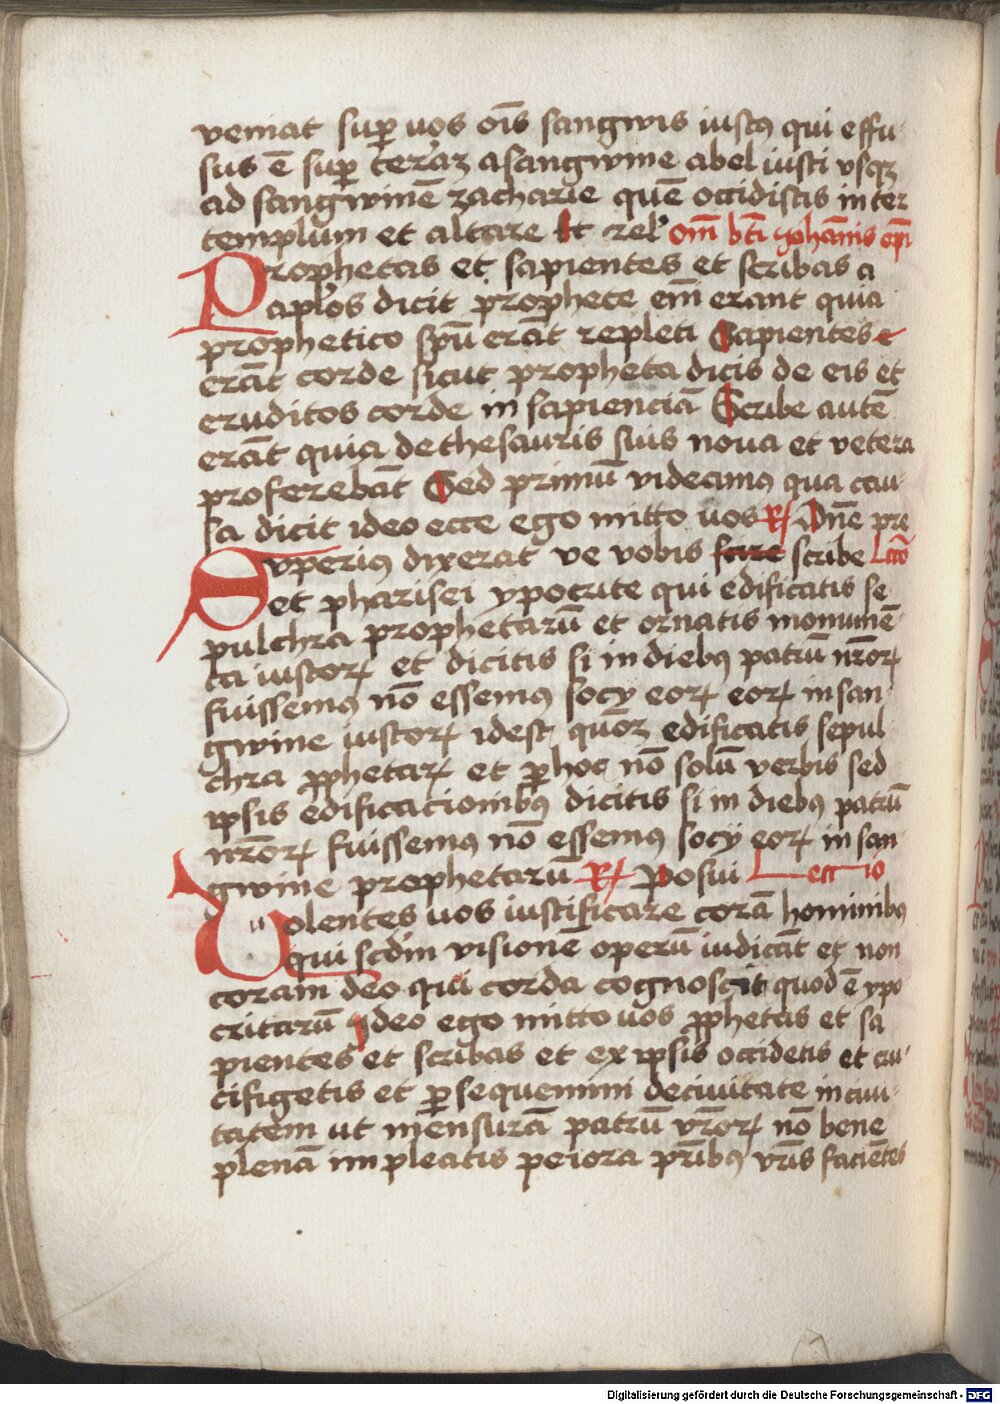 veniat sup̄ uos oı̄s sangwis iustꝰ qui effu-
sus ē sup̄ terraʒ a sangwine abel iusti vsqʒ
ad sangwinē zacharie quē occidistis inter
templum et altare Et rel' om̄ bt̄i Johānis ep̄i
Prophetas et sapientes et scribas a
apl'os dicit prophete em̄ erant quia
prophetico sp̄u erāt repleti Sapientes
erāt corde sicut propheta dicis de eis et
eruditos corde in sapienciā Scribe autē
erāt quia de thesauris suis noua et vetera
proferebāt Sed primū videamꝰ qua cau-
sa dicit ideo ecce ego mitto uos R̷ Dn̄e pre
Svperiꝰ dixerat ve vobis scribe Lcc̄o
et pharisei ypocrite qui edificatis se
pulchra prophetarū et ornatis monumē-
ta iustoꝝ et dicitis si in diebꝰ patrū nr̄oꝝ
fuissemꝰ nō essemꝰ socy eoꝝ eoꝝ in san
gwine iustoꝝ idest quoꝝ edificatis sepul
chra ꝓphetaꝝ et ꝑ hoc nō solū verbis sed
ipsis edificacionibꝰ dicitis si in diebꝰ patrū
nr̄oꝝ fuissemꝰ nō essemꝰ socij eoꝝ in san
gwine prophetarū R̷ Posui Leccio
Uolentes uos iustificare corā hominibꝰ
qui scd̄m visionē operū iudicāt et non
coram deo qui corda cognoscit quod ē ypo
critarū Ideo ego mitto uos ꝓphetas et sa
pientes et scribas et ex ipsis occidetis et cru-
cifigetis et ꝑsequemini de ciuitate in ciui-
tatem ut mensurā patrū vr̄oꝝ nō bene
plenā impleatis peiora pr̄ibꝰ vr̄is faciētes
Digitalisierung gefördert durch die Deutsche Forschungsgemeinschaft - DFG